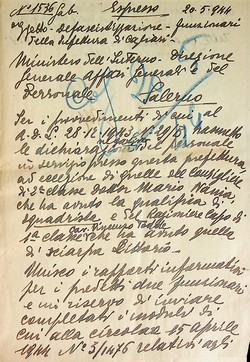 N° 1536 Gab. Espresso 20-5-944
Oggetto - defascistizzazione - funzionari
della Prefettura di Cagliari
Ministero dell'Interno - Direzione
Generale Affari Generali e del
Personale Salerno
Per i provvedimenti di cui al
R.D.L. 28-12-1943 N° 29/B trasmetto
le dichiarazioni del personale
in servizio presso questa prefettura,
ad eccezione di quelle del Consigliere
di 2ª classe dottor Mario
che ha avuto la qualifica di
squadrista e del Ragioniere Capo di
Cav.
1ª classe che ha avuto quella
di sciarpa Littorio.
Unisco i rapporti informativi
per i predetti due funzionari
e mi riservo di inviare
completati i moduli di
cui alla circolare 15 aprile
1944 N° 3/1476 relativi agli